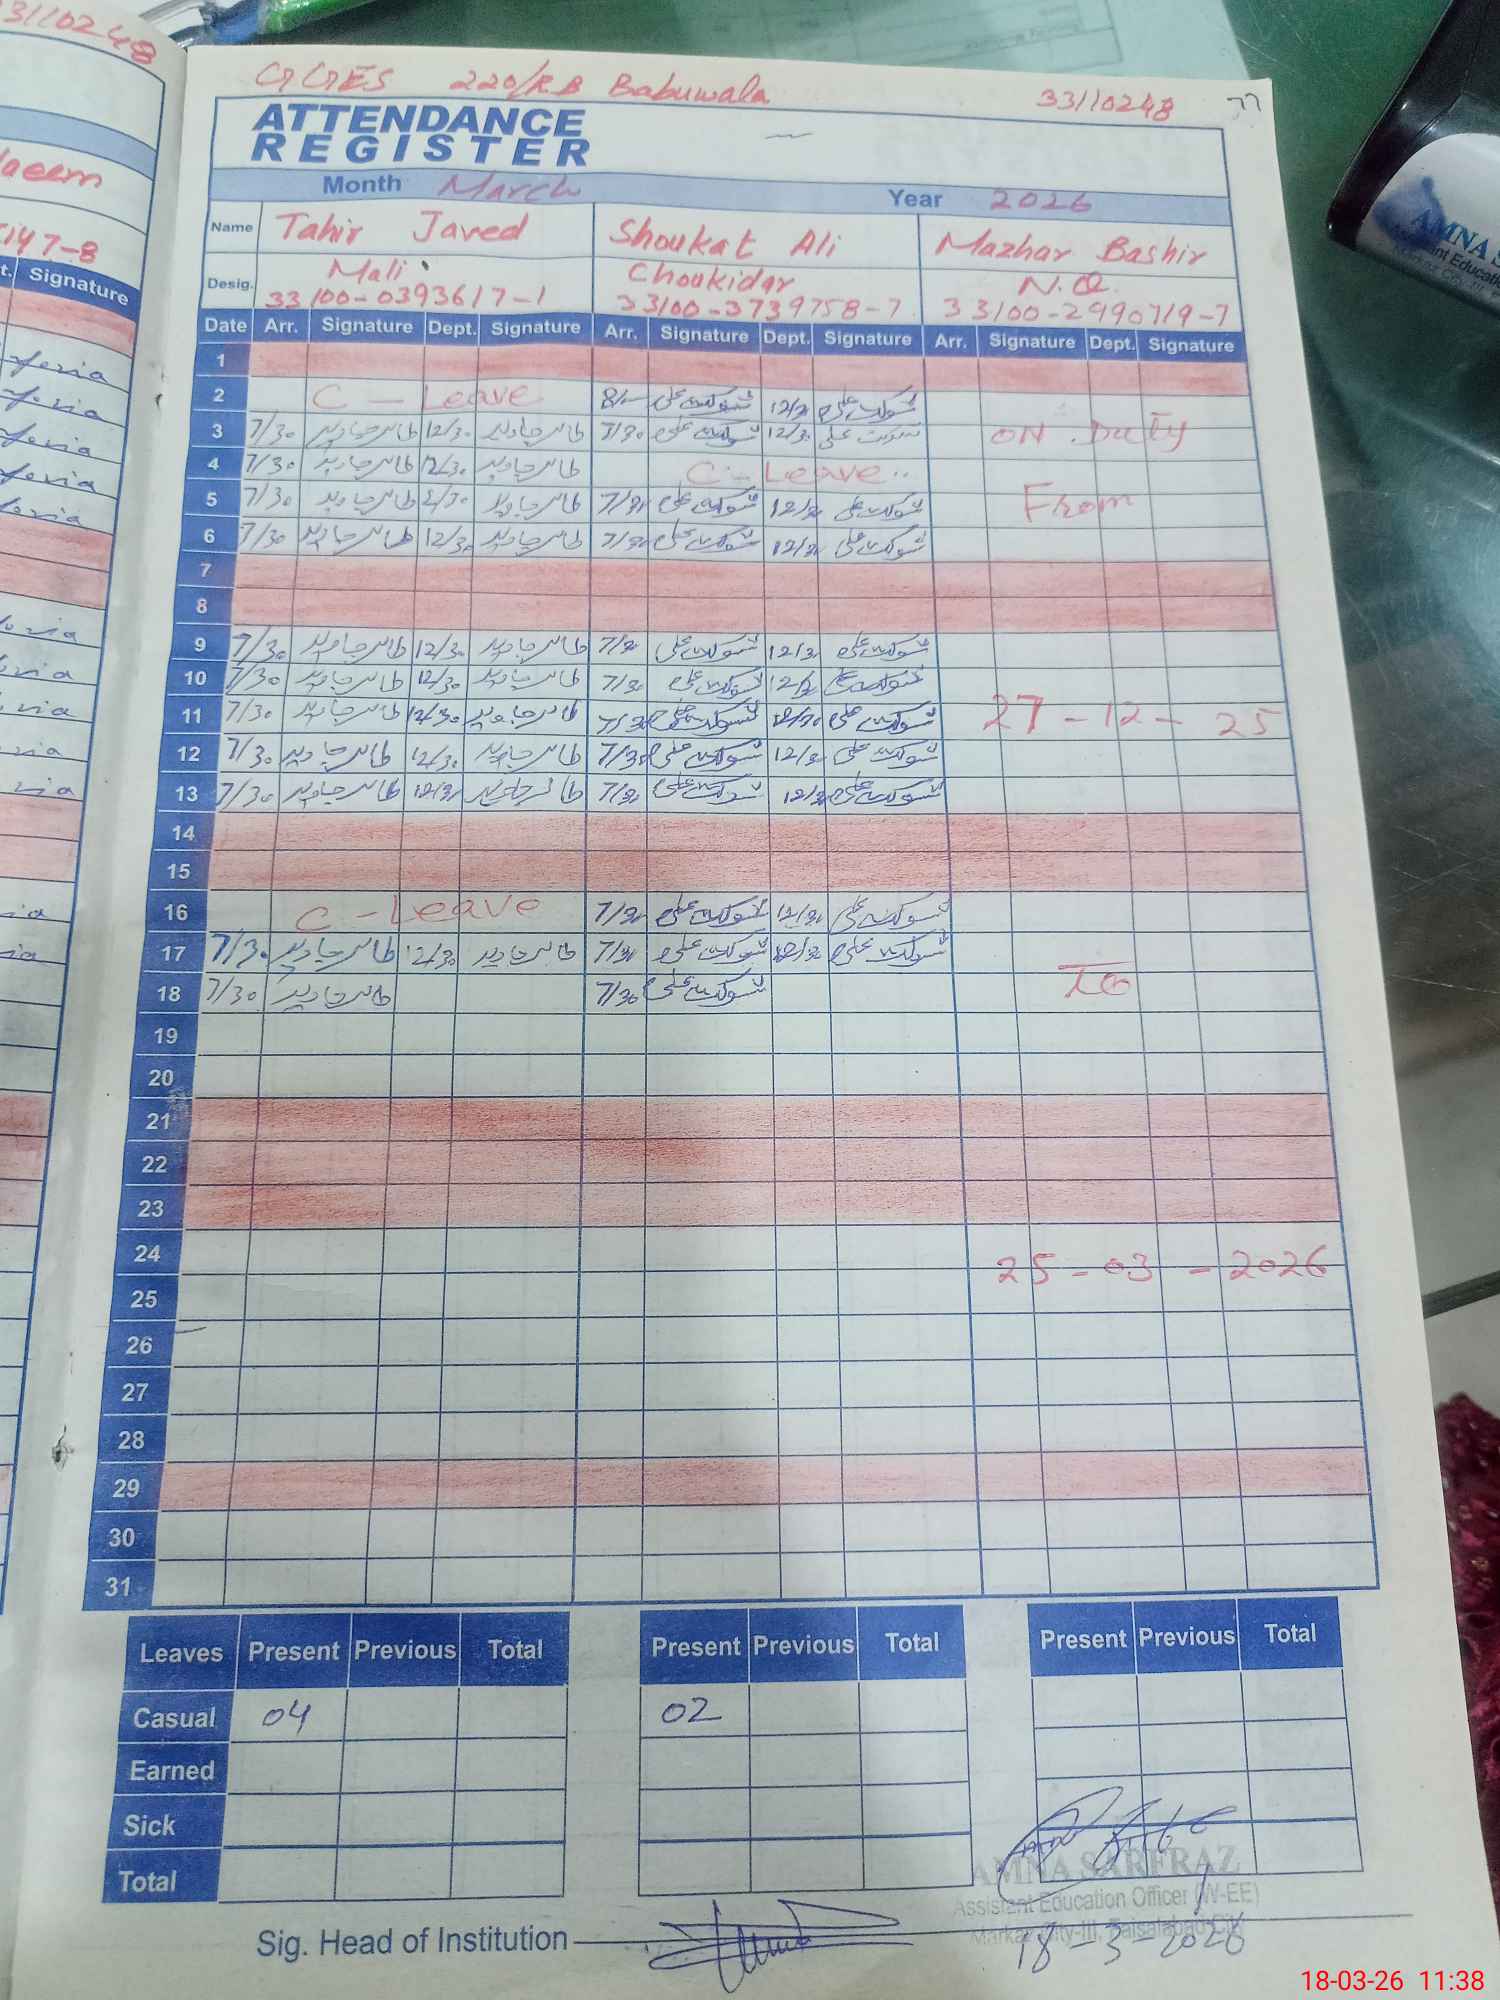 33110248
Naeem
5147-8
t. Signature
GGES 220/RB Babuwala 33110248 77
ATTENDANCE
REGISTER
Month March Year 2026
Name Tahir Javed Shoukat Ali Mazhar Bashir
Desig. Mali Choukidar N.Q.
33100-0393617-1 33100-3739758-7 33100-2990719-7
Date Arr. Signature Dept. Signature Arr. Signature Dept. Signature Arr. Signature Dept. Signature
1
2 C - Leave 8/- شوکت علی 12/30 شوکت علی
3 7/30 طاہر جاوید 12/30 طاہر جاوید 7/30 شوکت علی 12/30 شوکت علی ON Duty
4 7/30 طاہر جاوید 12/30 طاہر جاوید C - Leave
5 7/30 طاہر جاوید 12/30 طاہر جاوید 7/30 شوکت علی 12/30 شوکت علی From
6 7/30 طاہر جاوید 12/30 طاہر جاوید 7/30 شوکت علی 12/30 شوکت علی
7
8
9 7/30 طاہر جاوید 12/30 طاہر جاوید 7/30 شوکت علی 12/30 شوکت علی
10 7/30 طاہر جاوید 12/30 طاہر جاوید 7/30 شوکت علی 12/30 شوکت علی
11 7/30 طاہر جاوید 12/30 طاہر جاوید 7/30 شوکت علی 12/30 شوکت علی 27-12-25
12 7/30 طاہر جاوید 12/30 طاہر جاوید 7/30 شوکت علی 12/30 شوکت علی
13 7/30 طاہر جاوید 12/30 طاہر جاوید 7/30 شوکت علی 12/30 شوکت علی
14
15
16 C - Leave 7/30 شوکت علی 12/30 شوکت علی
17 7/30 طاہر جاوید 12/30 طاہر جاوید 7/30 شوکت علی 12/30 شوکت علی
18 7/30 طاہر جاوید 7/30 شوکت علی To
19
20
21
22
23
24 25-03-2026
25
26
27
28
29
30
31
Leaves Present Previous Total Present Previous Total Present Previous Total
Casual 04 02
Earned
Sick
Total
AMNA SARFRAZ
Assistant Education Officer (W-EE)
Markaz City-III, Faisalabad City
Sig. Head of Institution
18-3-2026
18-03-26 11:38